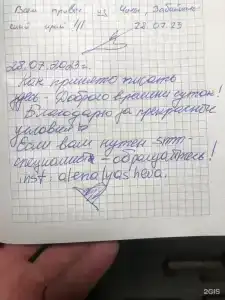 Всем привет из Читы Забайкальский край !!! 28.07.23
28.07.2023 г.
Как принято писать
здесь - Доброго времени суток!
Благодарю за прекрасные
условия
Если вам нужен smm -
специалист - обращайтесь!
inst alenalyasheva.
2GIS